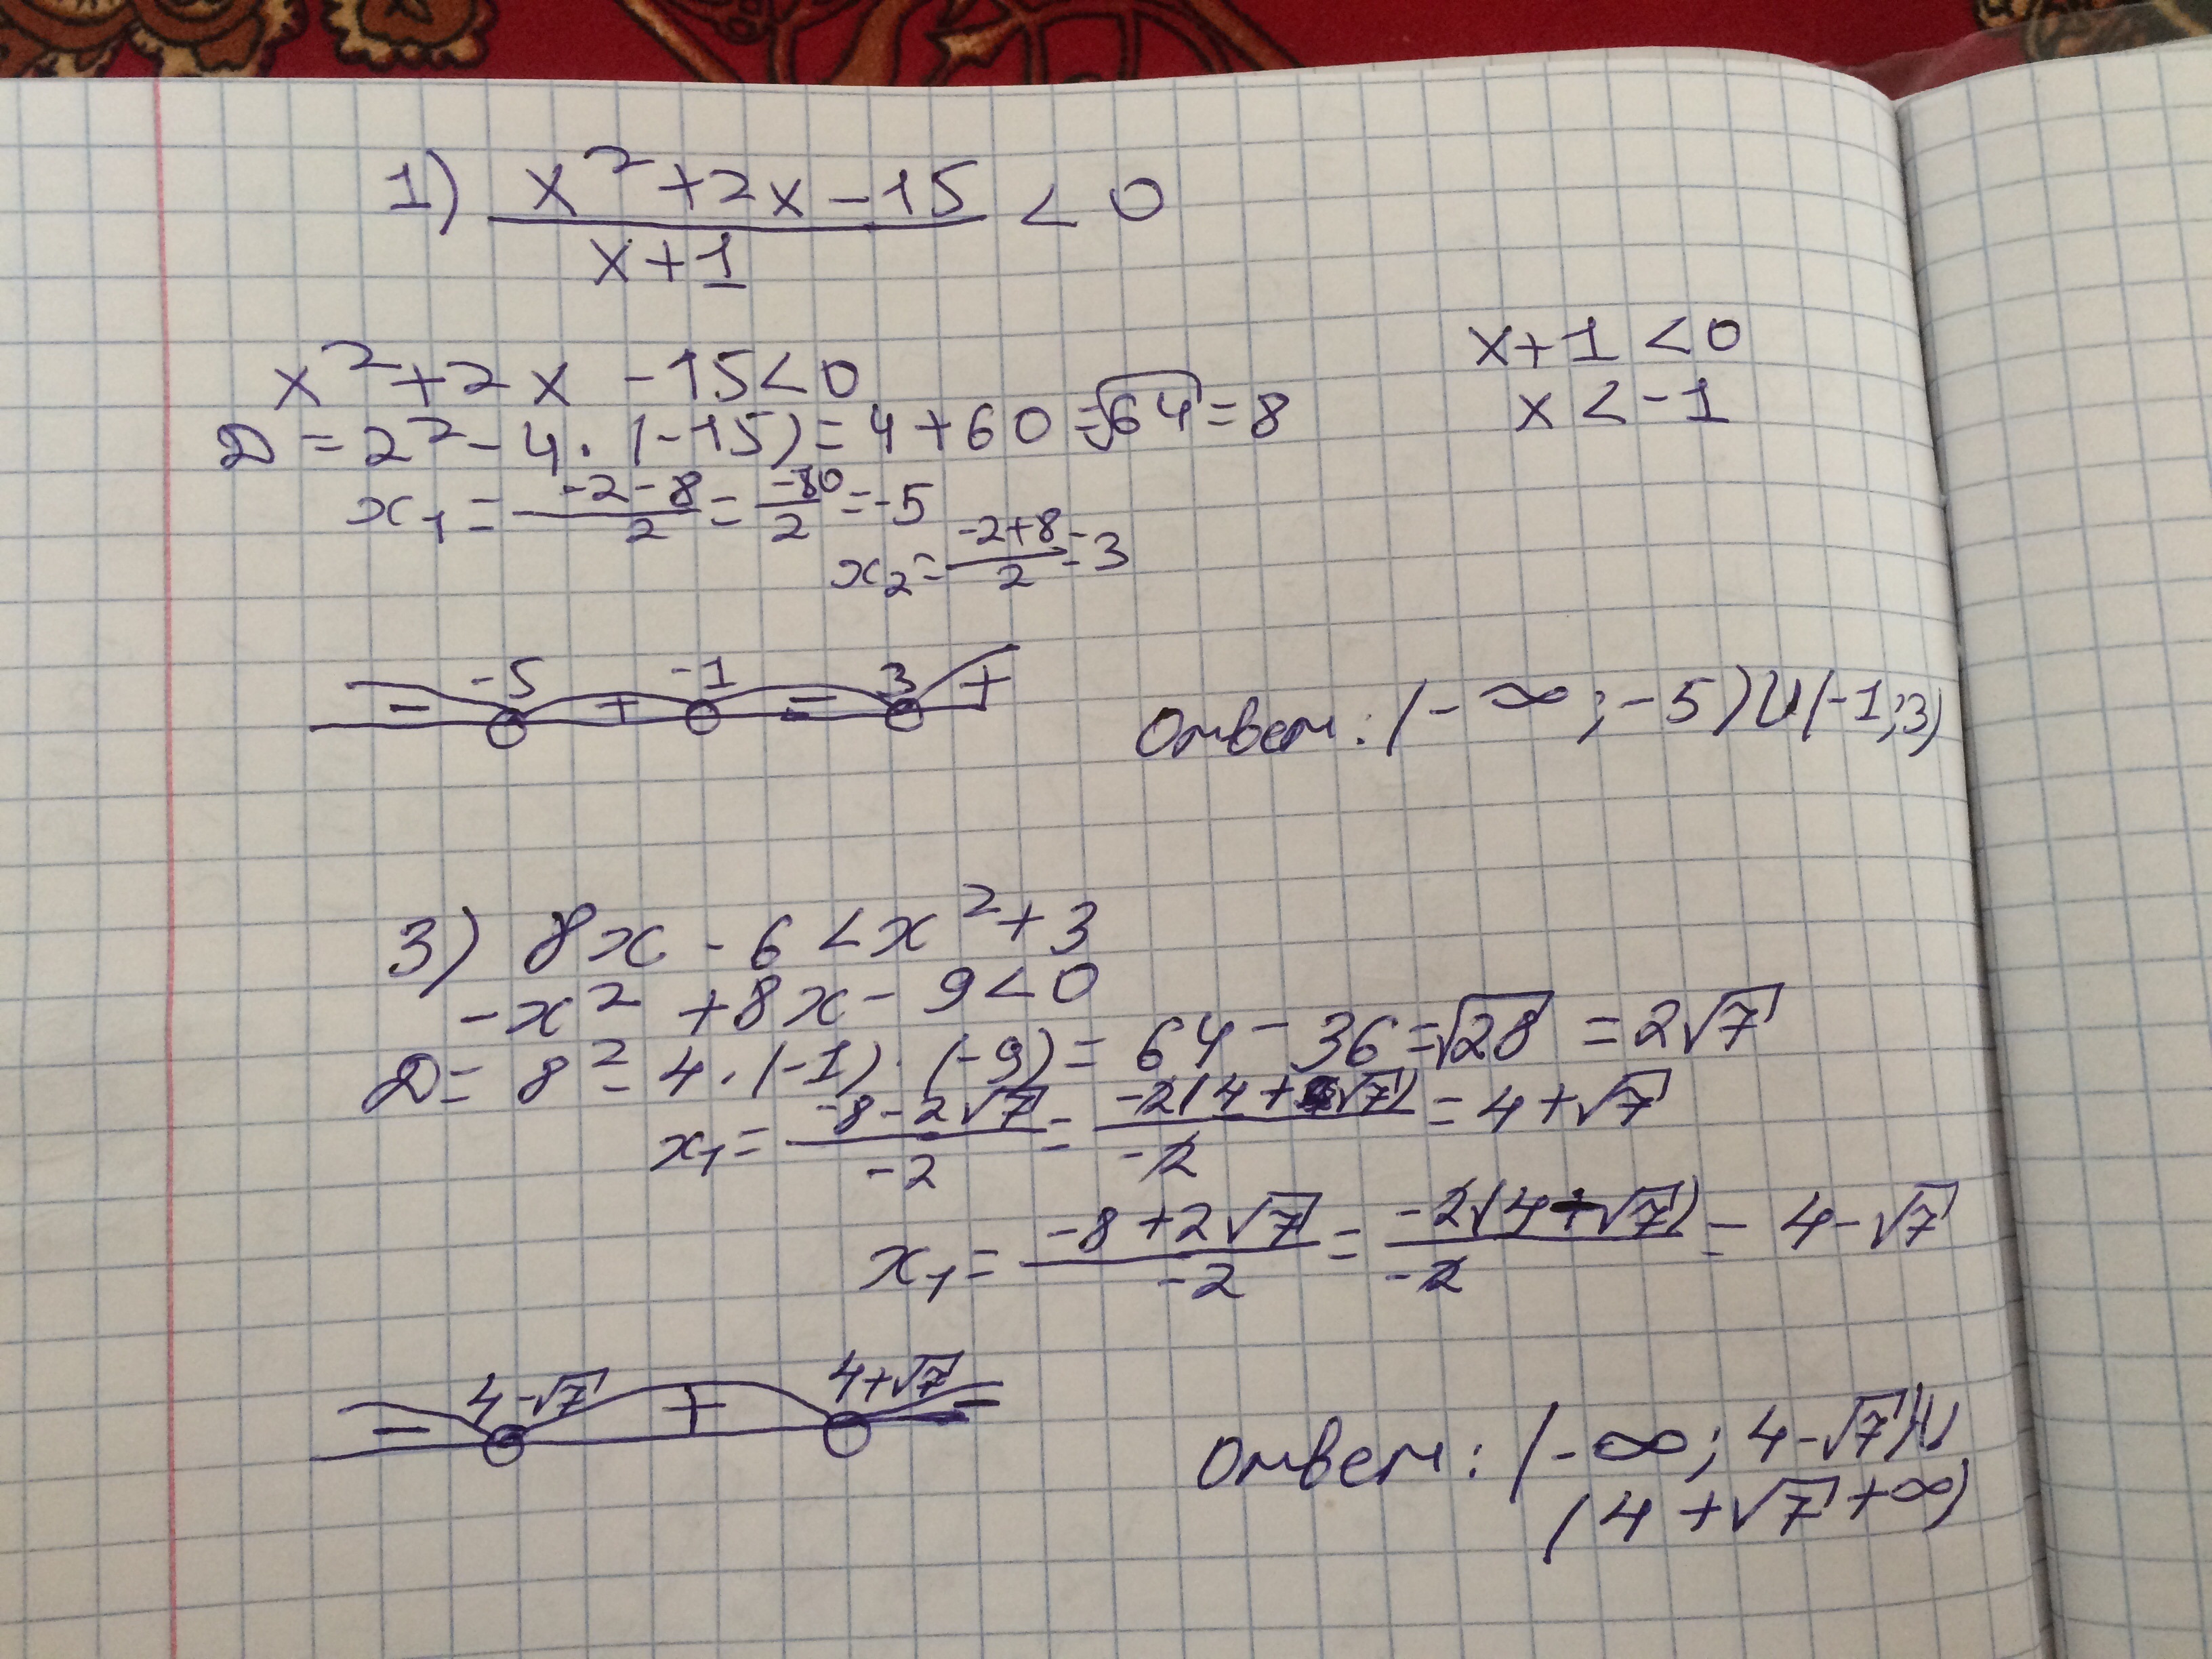 1) (x² + 2x - 15)/(x + 1) < 0
x² + 2x - 15 < 0
x + 1 < 0
x < -1
D = 2² - 4 · (-15) = 4 + 60 = √64 = 8
x₁ = (-2 - 8)/2 = -10/2 = -5
x₂ = (-2 + 8)/2 = 3
- -5 + -1 - 3 +
Ответ: (-∞; -5) U (-1; 3)
3) 8x - 6 < x² + 3
-x² + 8x - 9 < 0
D = 8² - 4 · (-1) · (-9) = 64 - 36 = √28 = 2√7
x₁ = (-8 - 2√7)/-2 = -2(4 + √7)/-2 = 4 + √7
x₁ = (-8 + 2√7)/-2 = -2(4 - √7)/-2 = 4 - √7
- 4-√7 + 4+√7 -
Ответ: (-∞; 4-√7) U
(4 + √7 +∞)